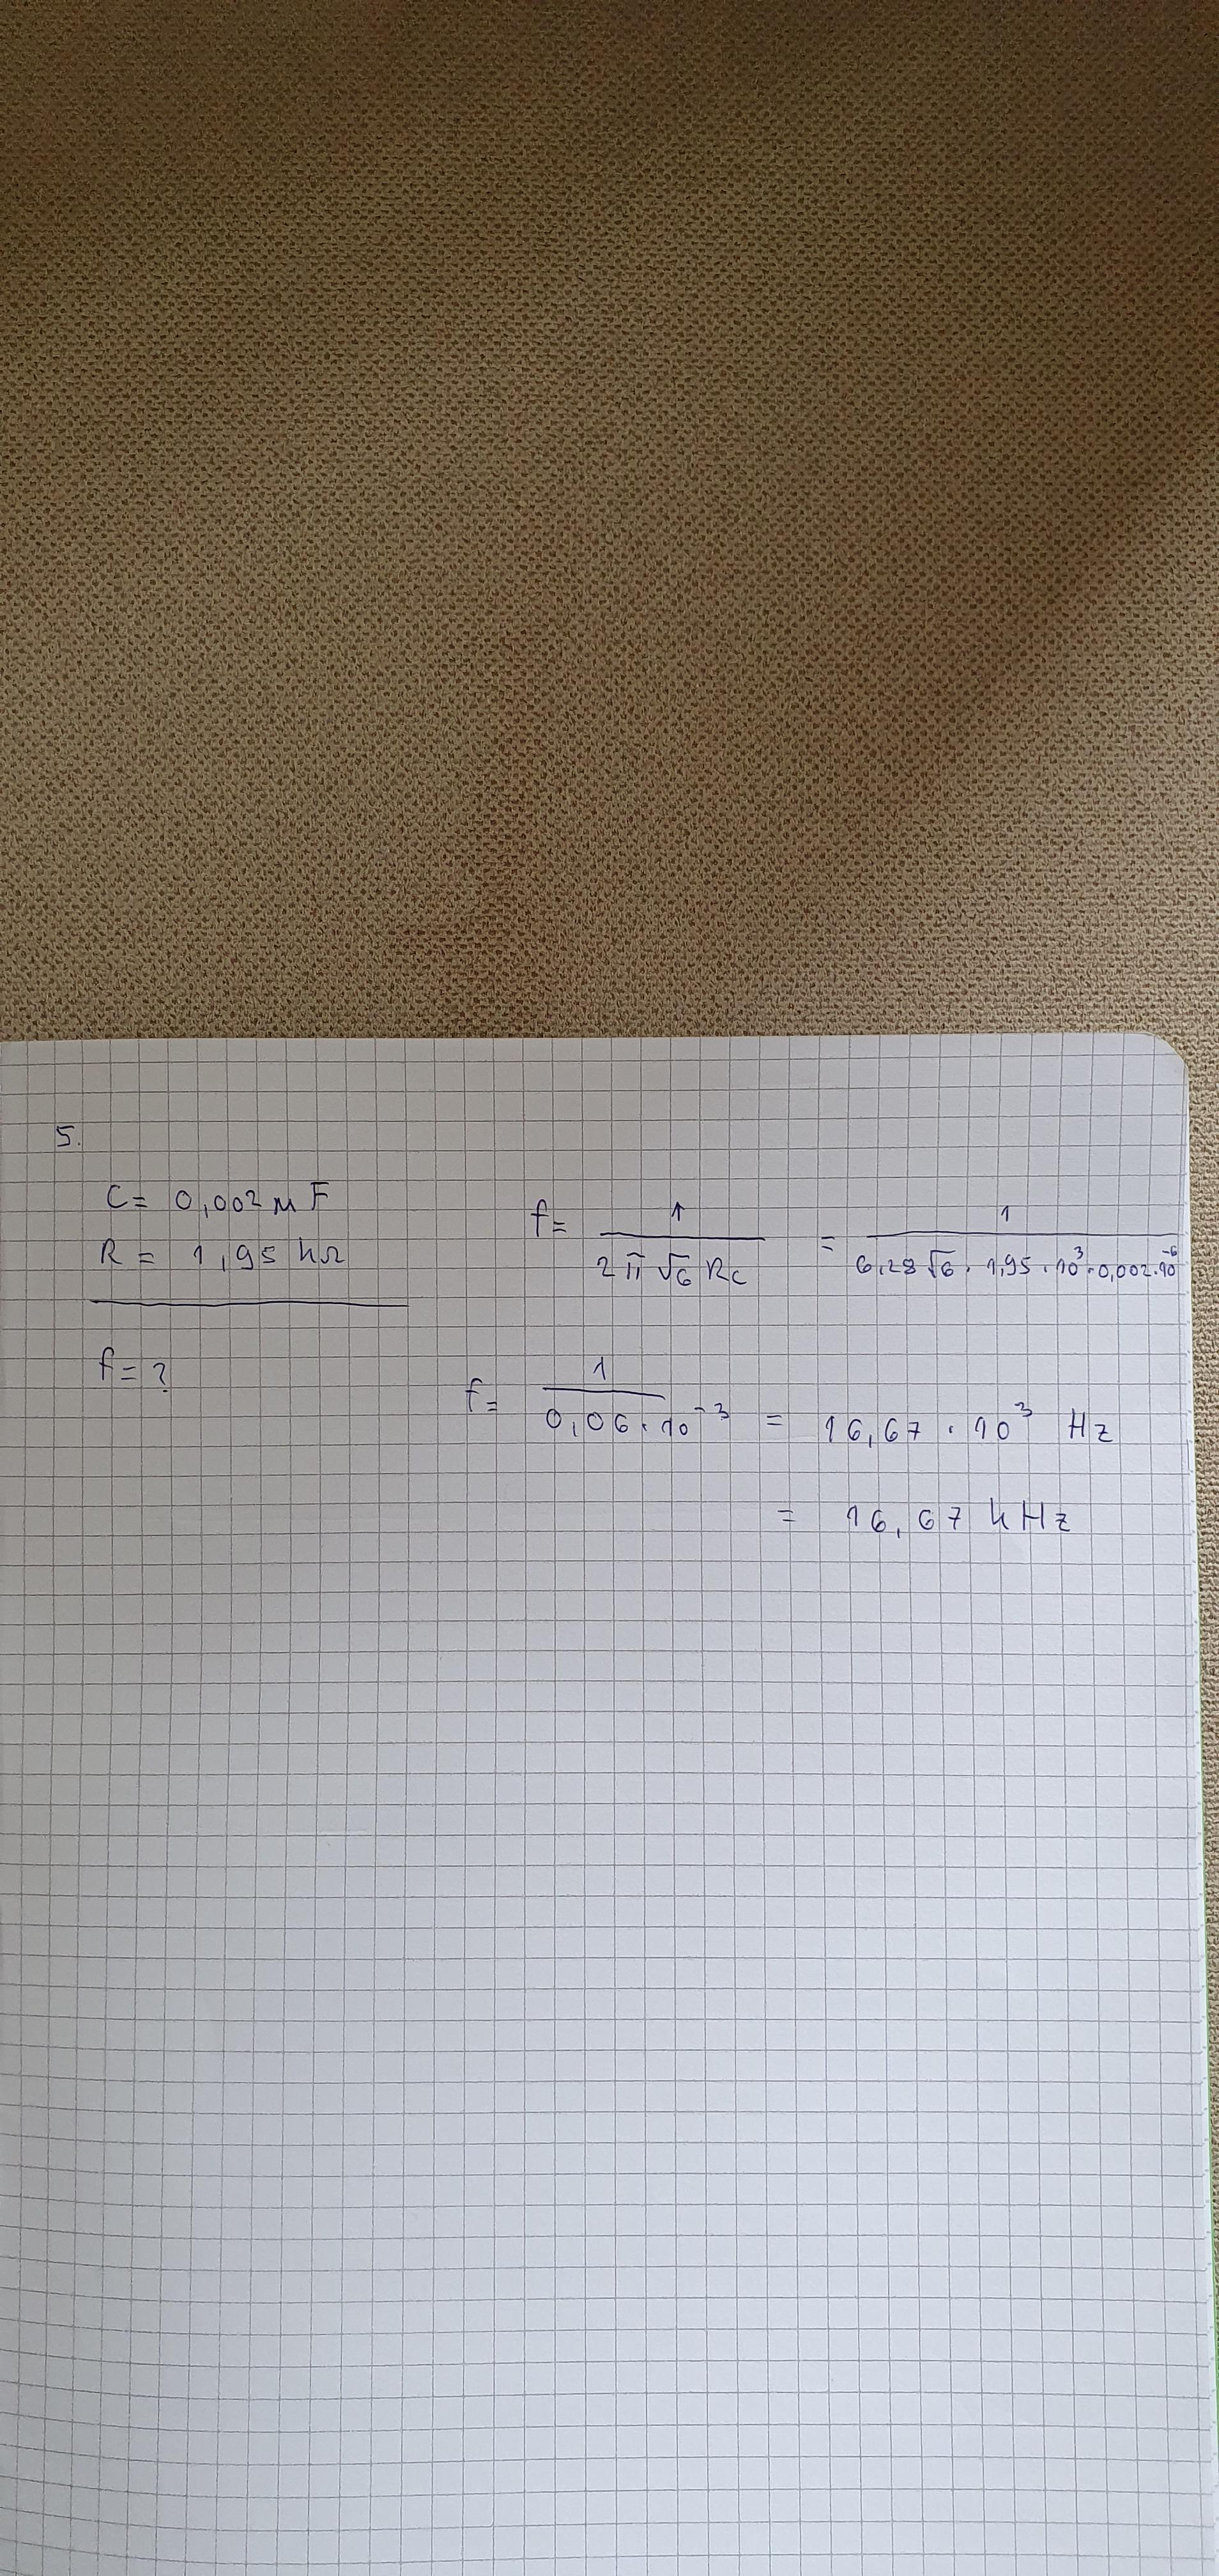 5.
C = 0,002 μF
R = 1,95 kΩ
f = ?
f = 1 / 2π√6 RC = 1 / 6,28√6 · 1,95 · 10³ · 0,002 · 10⁻⁶
f = 1 / 0,06 · 10⁻³ = 16,67 · 10³ Hz
= 16,67 kHz